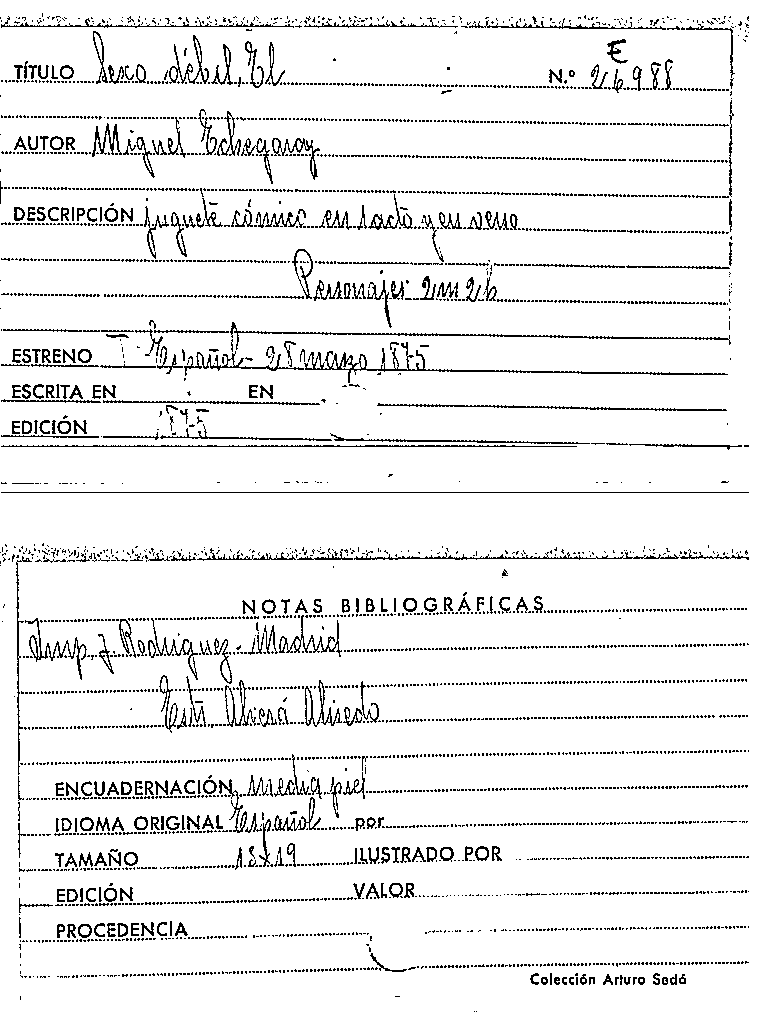 E
TÍTULO Sexo débil, El N.º 26988
AUTOR Miguel Echegaray
DESCRIPCIÓN juguete cómico en 1 acto y en verso
Personajes 2m 2h
ESTRENO T. Español - 28 marzo 1875
ESCRITA EN EN
EDICIÓN 1875
NOTAS BIBLIOGRÁFICAS
Imp. J. Rodriguez - Madrid
ENCUADERNACIÓN media piel
IDIOMA ORIGINAL Español por
TAMAÑO 13x19 ILUSTRADO POR
EDICIÓN VALOR
PROCEDENCIA
Colección Arturo Sedó